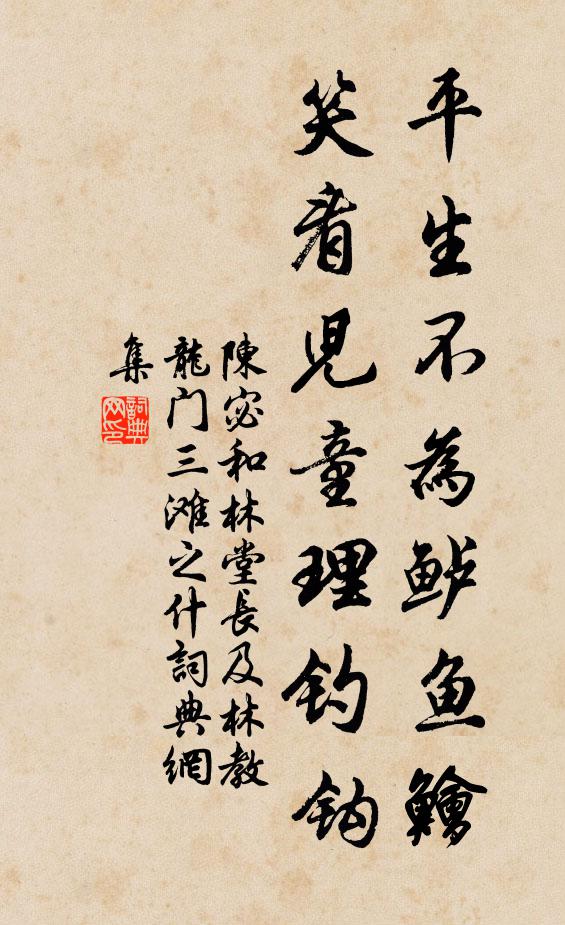 平生不為鲈鱼鱠
笑看兒童理钓钩
陳宓和林堂長及林教
龍门三滩之什詞典網
集
詞典网印